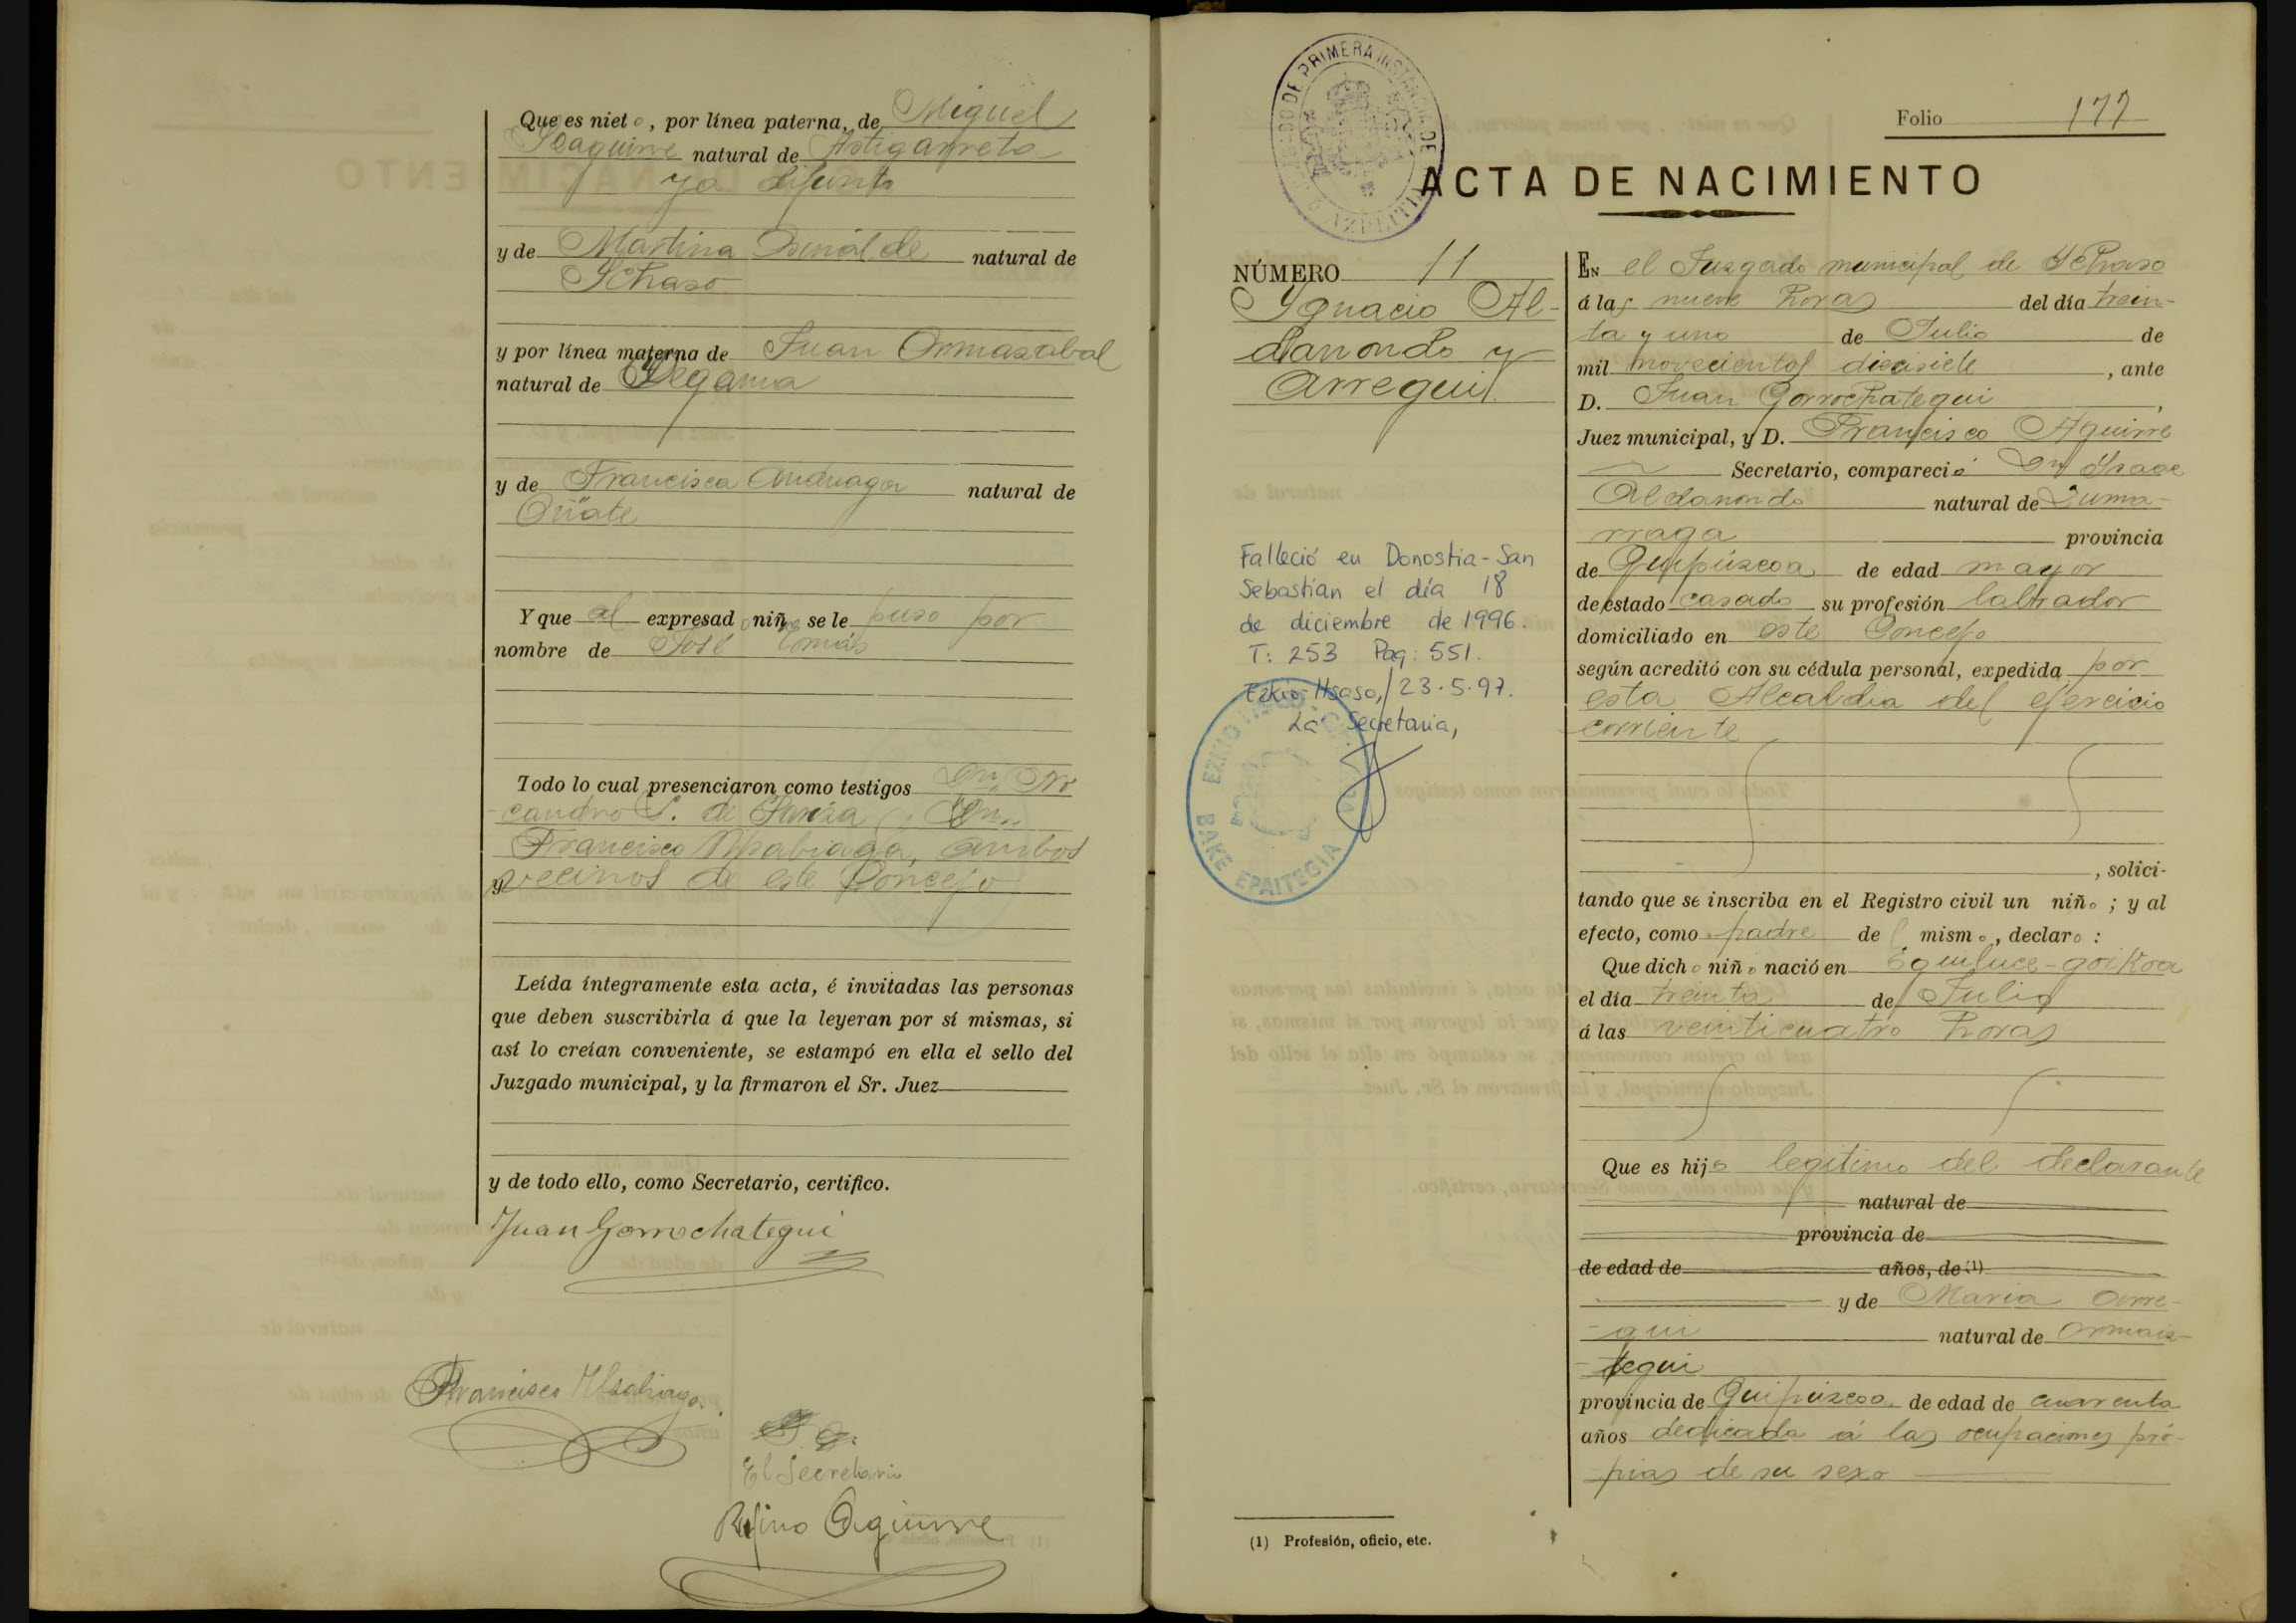 Que es nieto, por línea paterna, de Miguel
natural de Astigarreta
ya difunto
y de Martina natural de
Ichaso
y por línea materna de Juan Ormazabal
natural de Segama
y de Francisca Anduaga natural de
Oñate
Y que al expresado niño se le puso por
nombre de José Tomás
Todo lo cual presenciaron como testigos Dn. Ni-
candro S. de y Dn.
Francisco ambos
vecinos de este Concejo
Leída íntegramente esta acta, é invitadas las personas
que deben suscribirla á que la leyeran por sí mismas, si
así lo creían conveniente, se estampó en ella el sello del
Juzgado municipal, y la firmaron el Sr. Juez
y de todo ello, como Secretario, certifico.
Juan Gorrochategui
Francisco
El Secretario
Rufino Aguirre
JUZGADO DE PRIMERA INSTANCIA DE AZPEITIA
Folio 177
ACTA DE NACIMIENTO
NÚMERO 11
Ygnacio Al-
danondo y
Arregui
Falleció en Donostia-San
Sebastián el día 18
de diciembre de 1996.
T: 253 Pag: 551.
Ezkio-Itsaso, 23.5.97.
La Secretaria,
BAKE EPAITEGIA
En el Juzgado municipal de Ychaso
á las nueve horas del día trein-
ta y uno de Julio de
mil novecientos diecisiete, ante
D. Juan Gorrochategui,
Juez municipal, y D. Francisco Aguirre
Secretario, compareció Dn Ysaac
Aldanondo natural de Zuma-
rraga provincia
de Guipúzcoa de edad mayor
de estado casado su profesión labrador
domiciliado en este Concejo
según acreditó con su cédula personal, expedida por
esta Alcaldia del ejercicio
corriente
, solici-
tando que se inscriba en el Registro civil un niño; y al
efecto, como padre del mismo, declaro:
Que dicho niño nació en Eguiluce-goikoa
el día treinta de Julio
á las veinticuatro horas
Que es hijo legitimo del declarante
natural de
provincia de
de edad de años, de (1)
y de Maria Arre-
gui natural de Ormaiz-
tegui
provincia de Guipúzcoa de edad de cuarenta
años dedicada á las ocupaciones pro-
pias de su sexo
(1) Profesión, oficio, etc.